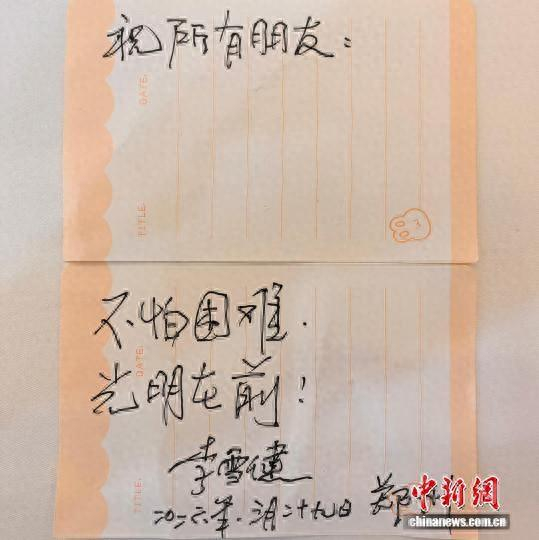 祝所有朋友:
DATE.
TITLE.
不怕困难.
光明在前!
DATE.
李雪健
TITLE.
二〇二六年.二月二十九日 郑
中新網
chinanews.com